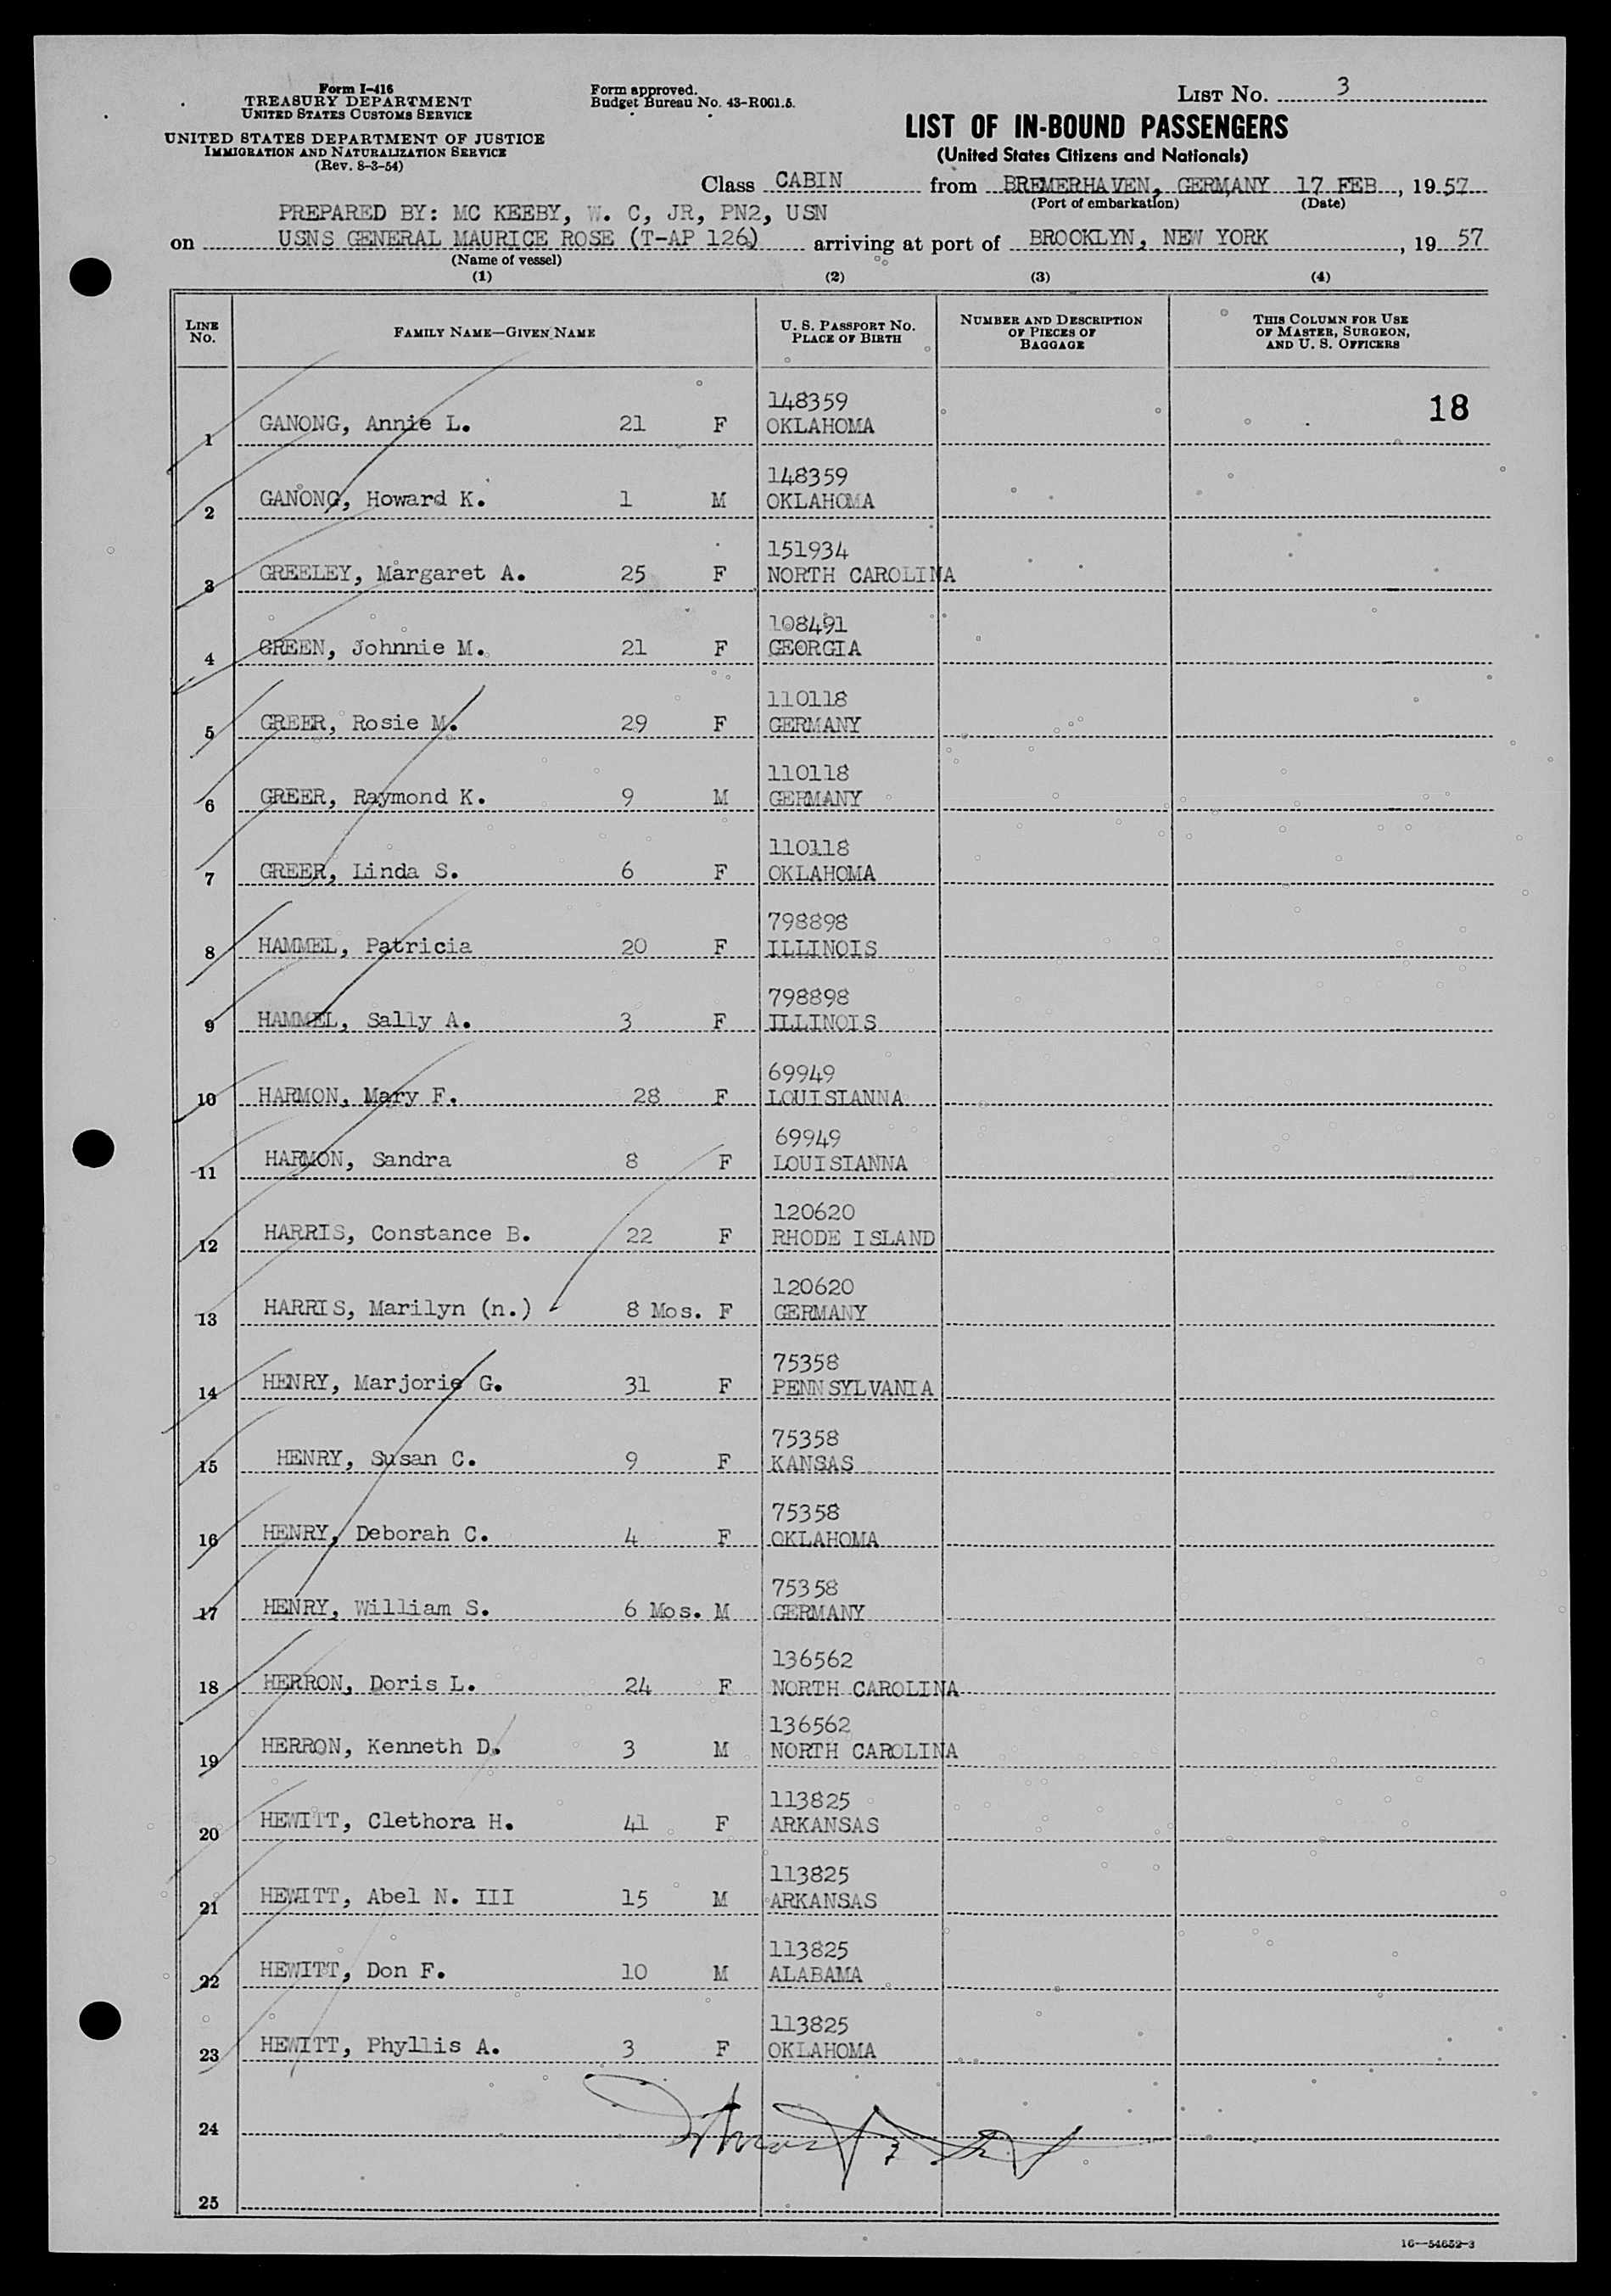 Form I-416
TREASURY DEPARTMENT
UNITED STATES CUSTOMS SERVICE
UNITED STATES DEPARTMENT OF JUSTICE
IMMIGRATION AND NATURALIZATION SERVICE
(Rev. 8-3-54)
Form approved.
Budget Bureau No. 43-R001.5.
LIST NO. 3
LIST OF IN-BOUND PASSENGERS
(United States Citizens and Nationals)
Class CABIN from BREMERHAVEN, GERMANY 17 FEB, 1957
(Port of embarkation) (Date)
PREPARED BY: MC KEEBY, W. C, JR, PN2, USN
on USNS GENERAL MAURICE ROSE (T-AP 126) arriving at port of BROOKLYN, NEW YORK, 19 57
(Name of vessel)
(1) (2) (3) (4)
LINE NO. FAMILY NAME—GIVEN NAME U. S. PASSPORT NO. PLACE OF BIRTH NUMBER AND DESCRIPTION OF PIECES OF BAGGAGE THIS COLUMN FOR USE OF MASTER, SURGEON, AND U. S. OFFICERS
148359 18
1 GANONG, Annie L. 21 F OKLAHOMA
148359
2 GANONG, Howard K. 1 M OKLAHOMA
151934
3 GREELEY, Margaret A. 25 F NORTH CAROLINA
108491
4 GREEN, Johnnie M. 21 F GEORGIA
110118
5 GREER, Rosie M. 29 F GERMANY
110118
6 GREER, Raymond K. 9 M GERMANY
110118
7 GREER, Linda S. 6 F OKLAHOMA
798898
8 HAMMEL, Patricia 20 F ILLINOIS
798898
9 HAMMEL, Sally A. 3 F ILLINOIS
69949
10 HARMON, Mary F. 28 F LOUISIANNA
69949
11 HARMON, Sandra 8 F LOUISIANNA
120620
12 HARRIS, Constance B. 22 F RHODE ISLAND
120620
13 HARRIS, Marilyn (n.) 8 Mos. F GERMANY
75358
14 HENRY, Marjorie G. 31 F PENNSYLVANIA
75358
15 HENRY, Susan C. 9 F KANSAS
75358
16 HENRY, Deborah C. 4 F OKLAHOMA
75358
17 HENRY, William S. 6 Mos. M GERMANY
136562
18 HERRON, Doris L. 24 F NORTH CAROLINA
136562
19 HERRON, Kenneth D. 3 M NORTH CAROLINA
113825
20 HEWITT, Clethora H. 41 F ARKANSAS
113825
21 HEWITT, Abel N. III 15 M ARKANSAS
113825
22 HEWITT, Don F. 10 M ALABAMA
113825
23 HEWITT, Phyllis A. 3 F OKLAHOMA
24
25
16—54652-3